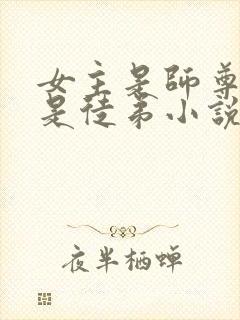 女主是師尊
是徒弟小說
夜半栖蝉